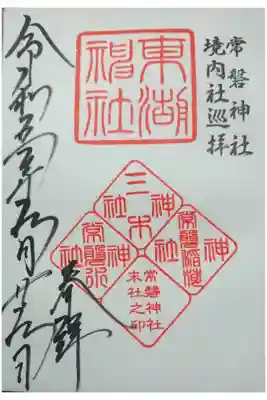 常磐神社
境内社巡拝
東湖
神社
三木
神社
常磐稲荷
神社
常磐水
神社
常磐神社
末社之印
奉拝
令和五年 月廿 日